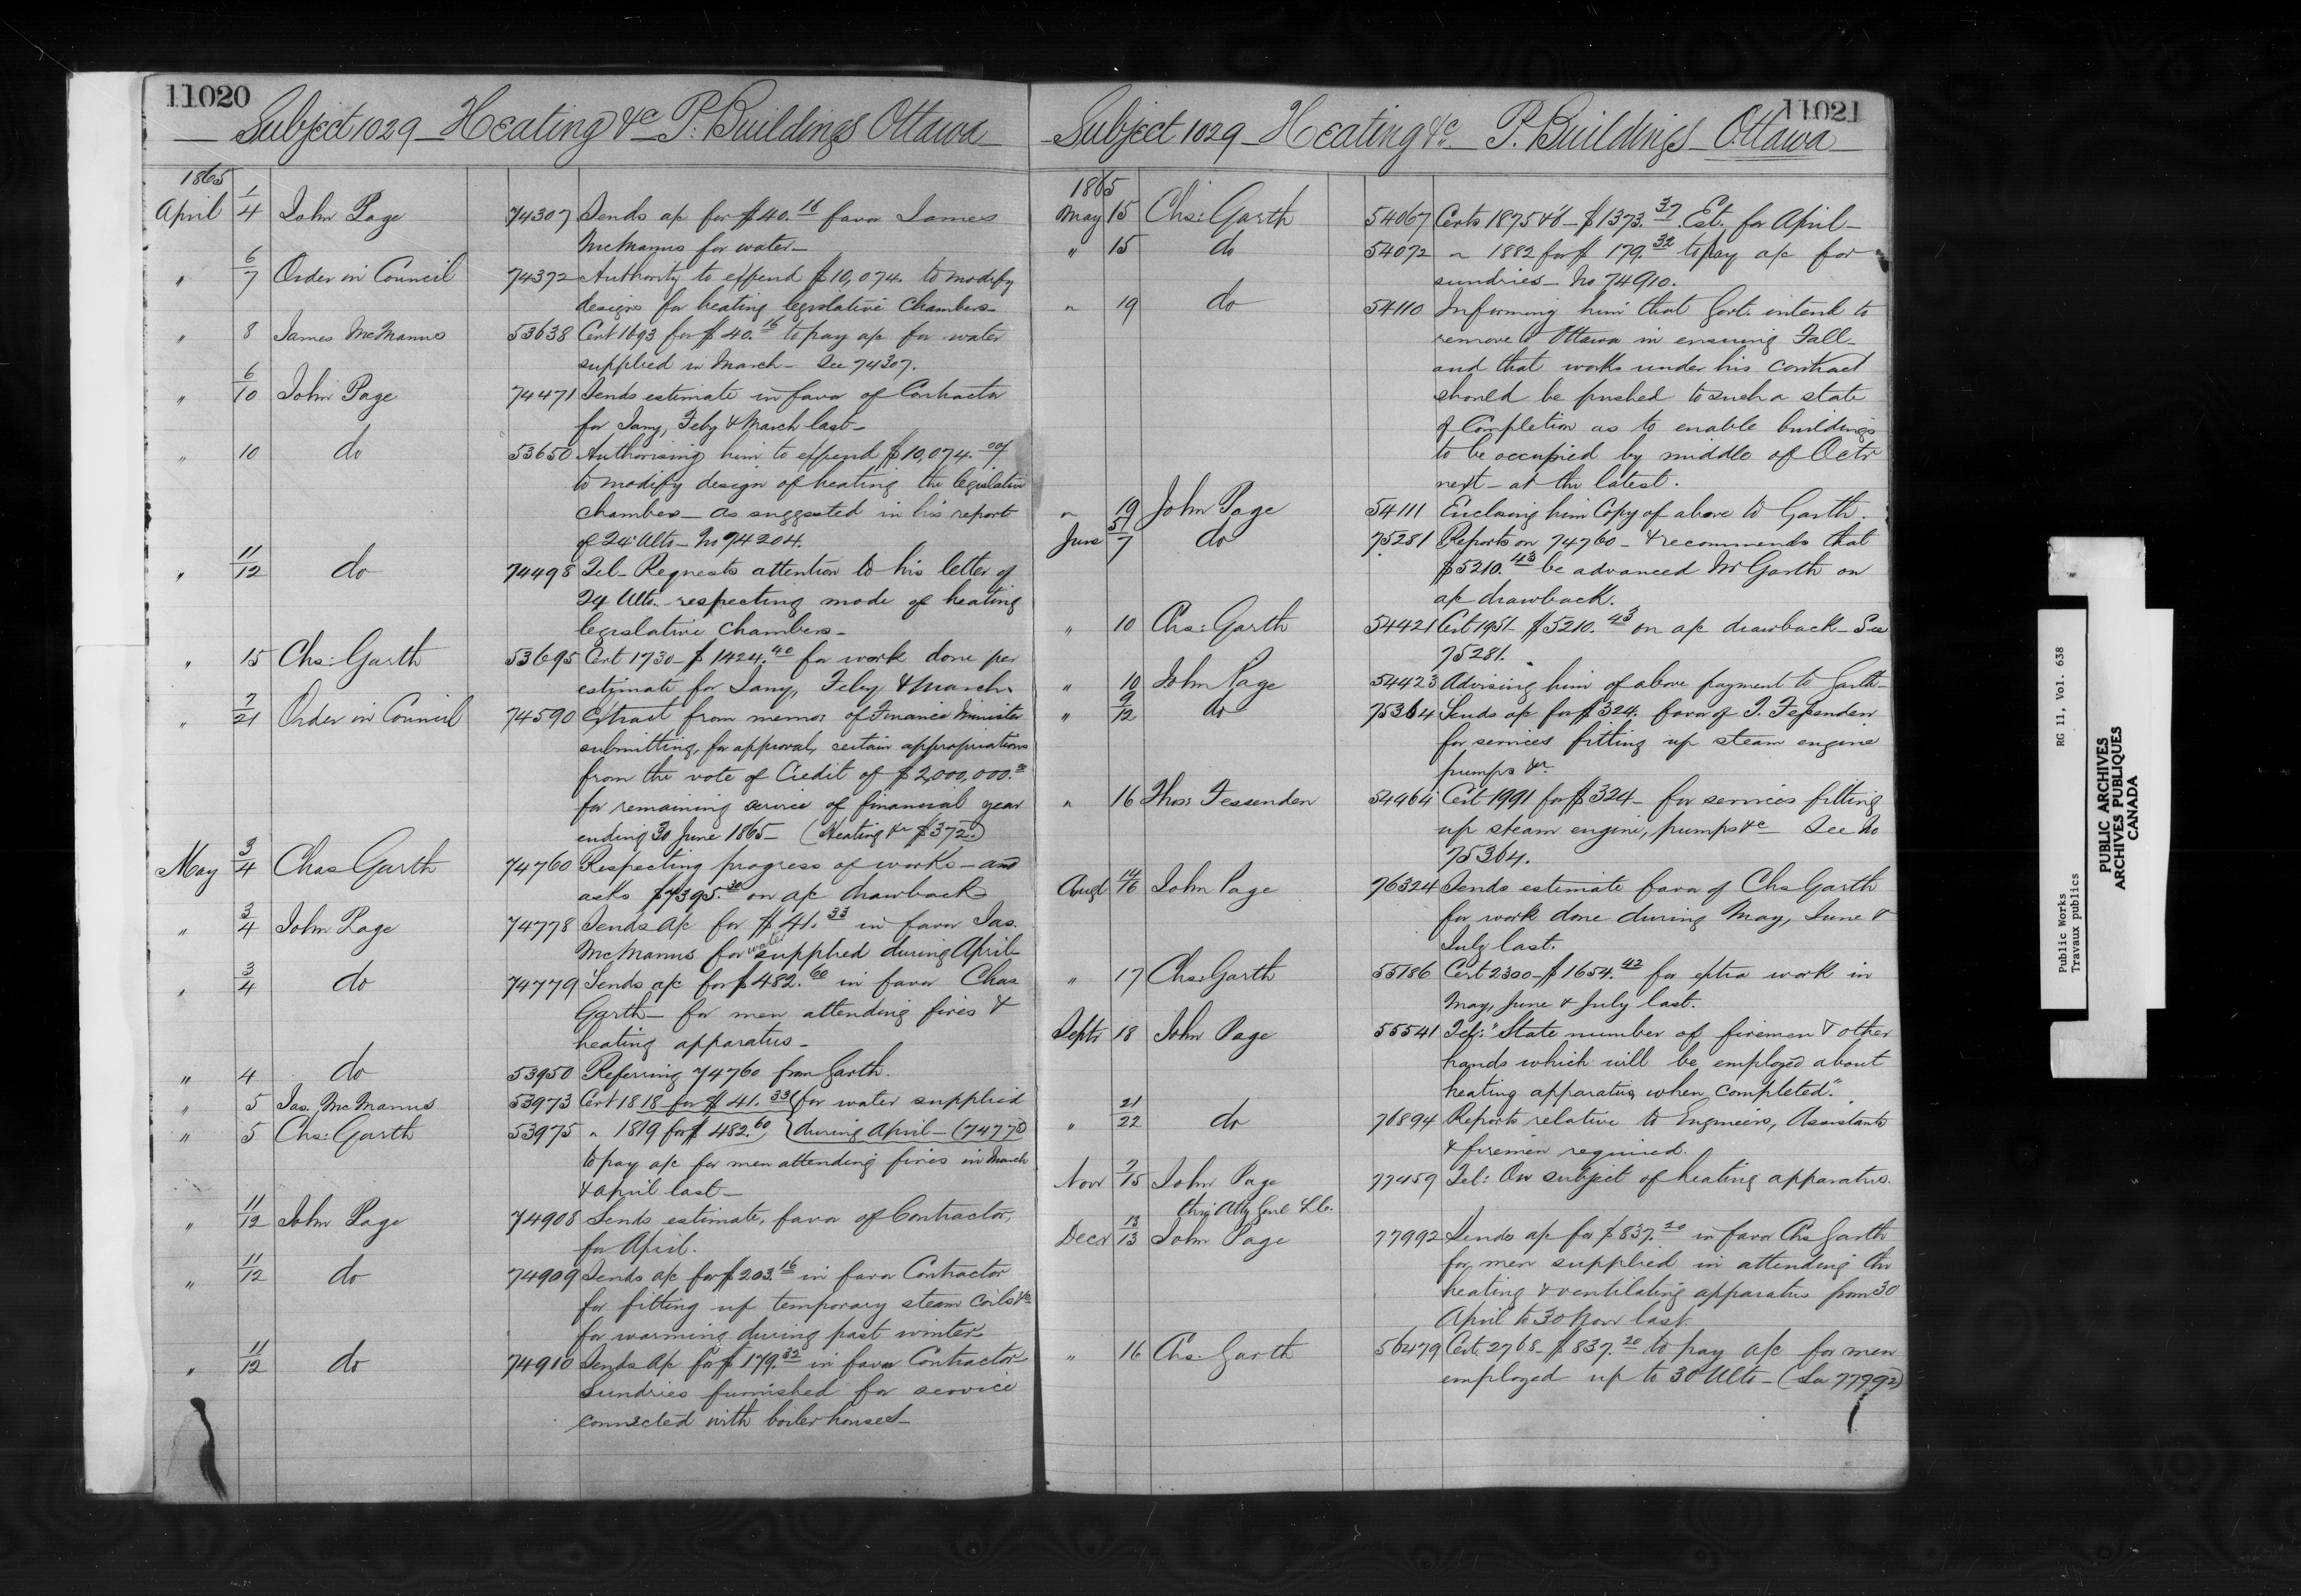 11020
Subject 1029 — Heating &c P. Buildings Ottawa
1865
April 1/4 John Page 74307 Sends a/c for $40.16 favor James
McManus for water —
" 6/7 Order in Council 74372 Authority to expend $10,074. to modify
design for heating legislative Chambers —
" 8 James McManus 53638 Cert 1693 for $40.16 to pay a/c for water
supplied in March — See 74307.
" 6/10 John Page 74471 Sends estimate in favor of Contractor
for Jany, Feby & March last —
" 10 do 53650 Authorising him to expend $10,074.00/
to modify design of heating the legislative
chambers — as suggested in his report
of 24 Ulto — No 74204.
" 11/12 do 74498 Tel — Requests attention to his letter of
24 Ulto. respecting mode of heating
legislative Chambers —
" 15 Chs: Garth 53695 Cert 1730 — $1424.40 for work done per
estimate for Jany, Feby & March
" 7/21 Order in Council 74590 Extract from memo: of Finance Minister
submitting, for approval, certain appropriations
from the vote of Credit of $2,000,000.
for remaining service of financial year
ending 30 June 1865 — (Heating &c $372.)
May 3/4 Chas Garth 74760 Respecting progress of works — and
asks $7395.30 on a/c drawback
" 3/4 John Page 74778 Sends a/c for $41.33 in favor Jas.
McManus for water supplied during April
" 3/4 do 74779 Sends a/c for $482.60 in favor Chas
Garth — for men attending fires &
heating apparatus —
" 4 do 53950 Referring 74760 from Garth.
" 5 Jas. McManus 53973 Cert 1818 for $41.33 { for water supplied
" 5 Chs: Garth 53975 " 1819 for $482.60, { during April — (74778)
to pay a/c for men attending fires in March
& April last —
" 11/12 John Page 74908 Sends estimate, favor of Contractor,
for April.
" 11/12 do 74909 Sends a/c for $203.16 in favor Contractor
for fitting up temporary steam coils &c
for warming during past winter
" 11/12 do 74910 Sends a/c for $179.32 in favor Contractor
sundries furnished for service
connected with boiler houses —
11021
Subject 1029 — Heating &c — P. Buildings — Ottawa
1865
May 15 Chs: Garth 54067 Certs 1875 &6 — $1373.37 Est. for April —
" 15 do 54072 " 1882 for $179.32 to pay a/c for
sundries — No 74910.
" 19 do 54110 Informing him that Govt. intend to
remove to Ottawa in ensuing Fall —
and that works under his contract
should be pushed to such a state
of Completion as to enable buildings
to be occupied by middle of Octr
next — at the latest.
" 19 John Page 54111 Enclosing him Copy of above to Garth.
June 5/7 do 75281 Reports on 74760 — & recommends that
$5210.43 be advanced Mr Garth on
a/c drawback.
" 10 Chs: Garth 54421 Cert 1951 — $5210.43 on a/c drawback — See
75281.
" 10 John Page 54423 Advising him of above payment to Garth —
" 9/12 do 75364 Sends a/c for $324. favor of T. Fessenden
for services fitting up steam engine
pumps &c.
" 16 Thos: Fessenden 54964 Cert 1991 for $324 — for services fitting
up steam engine, pumps &c See No
75364.
Augt 14/16 John Page 76324 Sends estimate favor of Chs Garth
for work done during May, June &
July last.
" 17 Chs: Garth 55186 Cert 2300 — $1654.42 for extra work in
May, June & July last.
Septr 18 John Page 55541 Tel: "State number of firemen & other
hands which will be employed about
heating apparatus, when completed".
" 21/22 do 76894 Reports relative to Engineers, Assistants
& firemen required.
Novr 7/15 John Page 77459 Tel: On subject of heating apparatus.
Atty Genl L.C.
Decr 13/13 John Page 77992 Sends a/c for $837.20 in favor Chs Garth
for men supplied in attending the
heating & ventilating apparatus from 30
April to 30 Novr last
" 16 Chs: Garth 56479 Cert. 2768 — $837.20 to pay a/c for men
employed up to 30 Ulto — (See 77992)
Public Works RG 11, Vol. 638
Travaux publics
PUBLIC ARCHIVES
ARCHIVES PUBLIQUES
CANADA